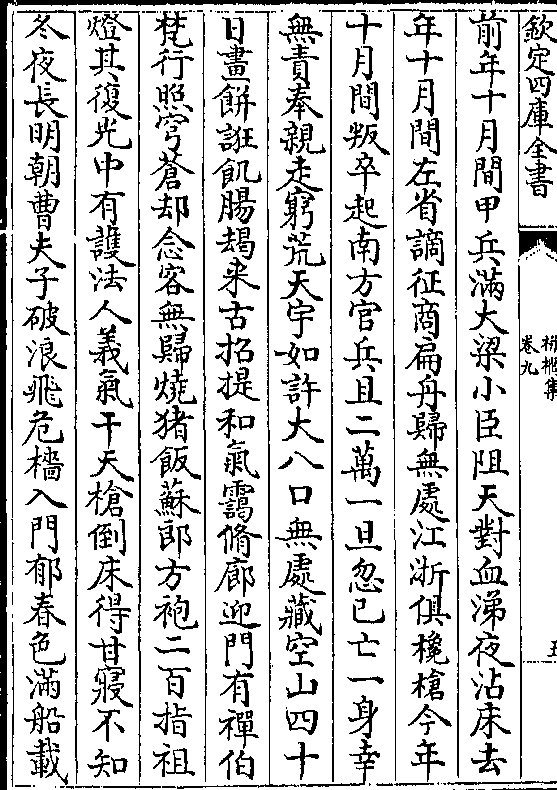 欽定四庫全書
栟櫚集
卷九
五
前年十月間甲兵滿大梁小臣阻天對血涕夜沾床去
年十月間左省謫征商扁舟歸無處江浙俱欃槍今年
十月間叛卒起南方官兵且二萬一旦忽已亡一身幸
無責奉親走窮荒天宇如許大八口無處藏空山四十
日畫餅誑飢腸朅来古招提和氣靄脩廊迎門有禪伯
梵行照穹蒼却念客無歸燒猪飯蘇郎方袍二百指祖
燈其復光中有護法人義氣干天槍倒床得甘寢不知
冬夜長明朝曹夫子破浪飛危檣入門郁春色滿船載